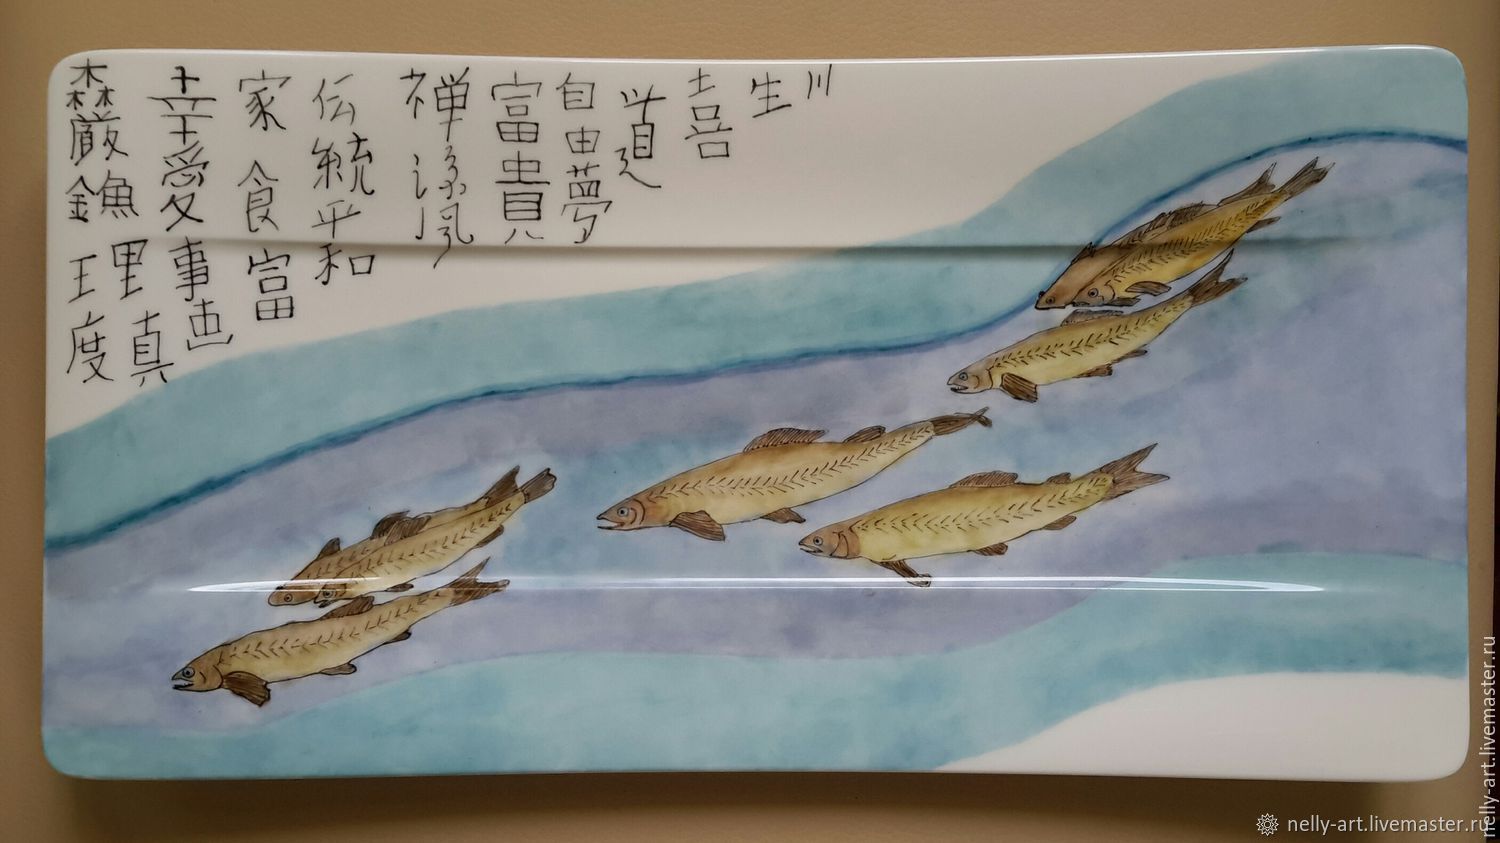 川
生
喜
道
自由夢
富貴
禅湶風
伝統平和
家食富
幸愛事
真
森厳
漁
理
度
nelly-art.livemaster.ru
nelly-art.livemaster.ru